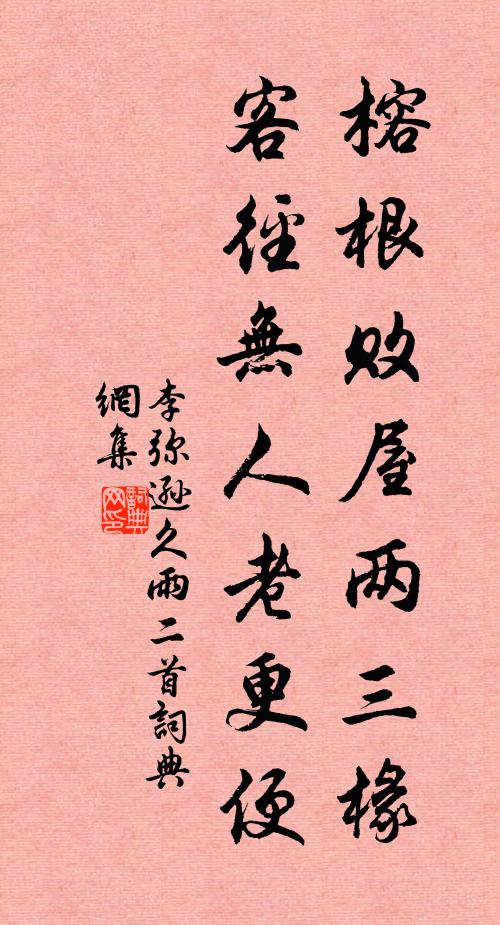 榕根败屋两三椽
客徑無人老更便
李弥遜久雨二首詞典
網集
詞典
网印